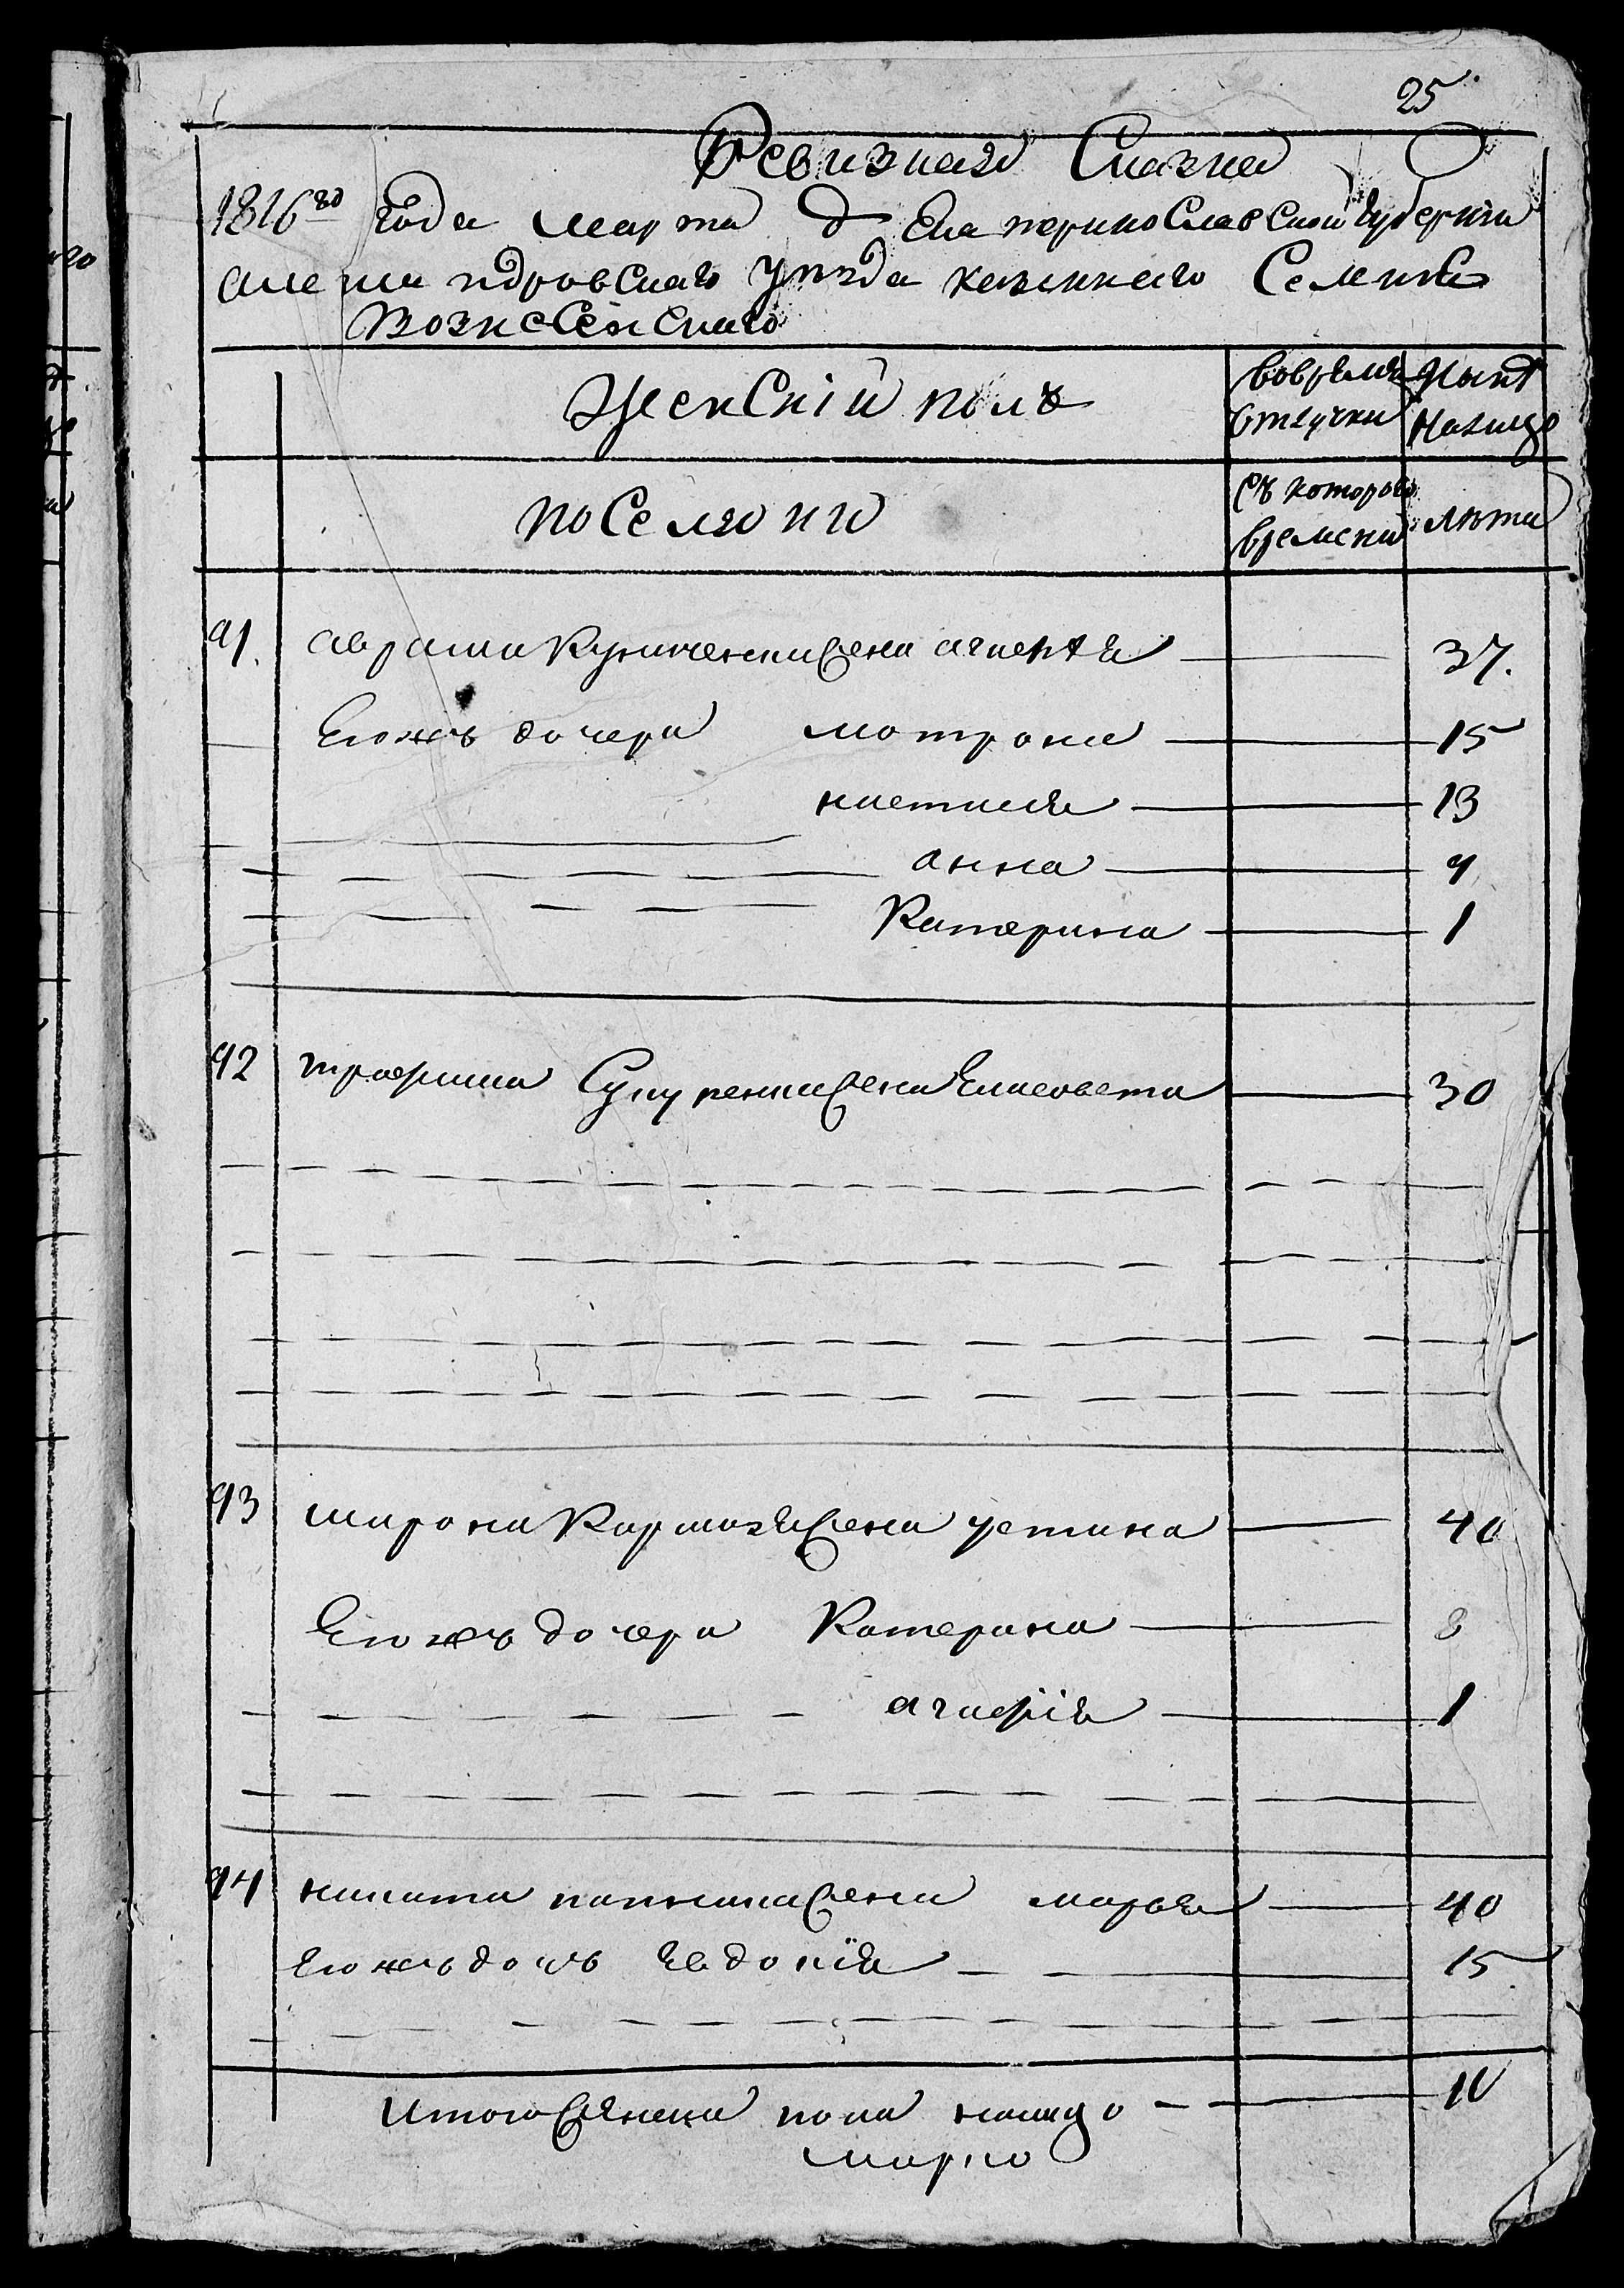 25
Ревизная Сказка
1816го Года марта д Екатеринославской Губернии
александровскаго уѣзда казеннаго Селенія
Вознесенскаго
Женскій полъ
вовремя отлучки
Нынѣ Налицо
поселяни
съ которого времени
лѣта
91. аврама Куниченкижена агнеѣя 37.
Егожъ дочери мотрона 15
настася 13
анна 9
Катерина 1
92 трофима жена Елисавета 30
93 мирона Кармазижена устина 40
Егожъ дочери Катерина 8
агафія 1
94 никита жена марья 40
Егожъ дочь Евдокія 15
Итого женска пола налицо 10